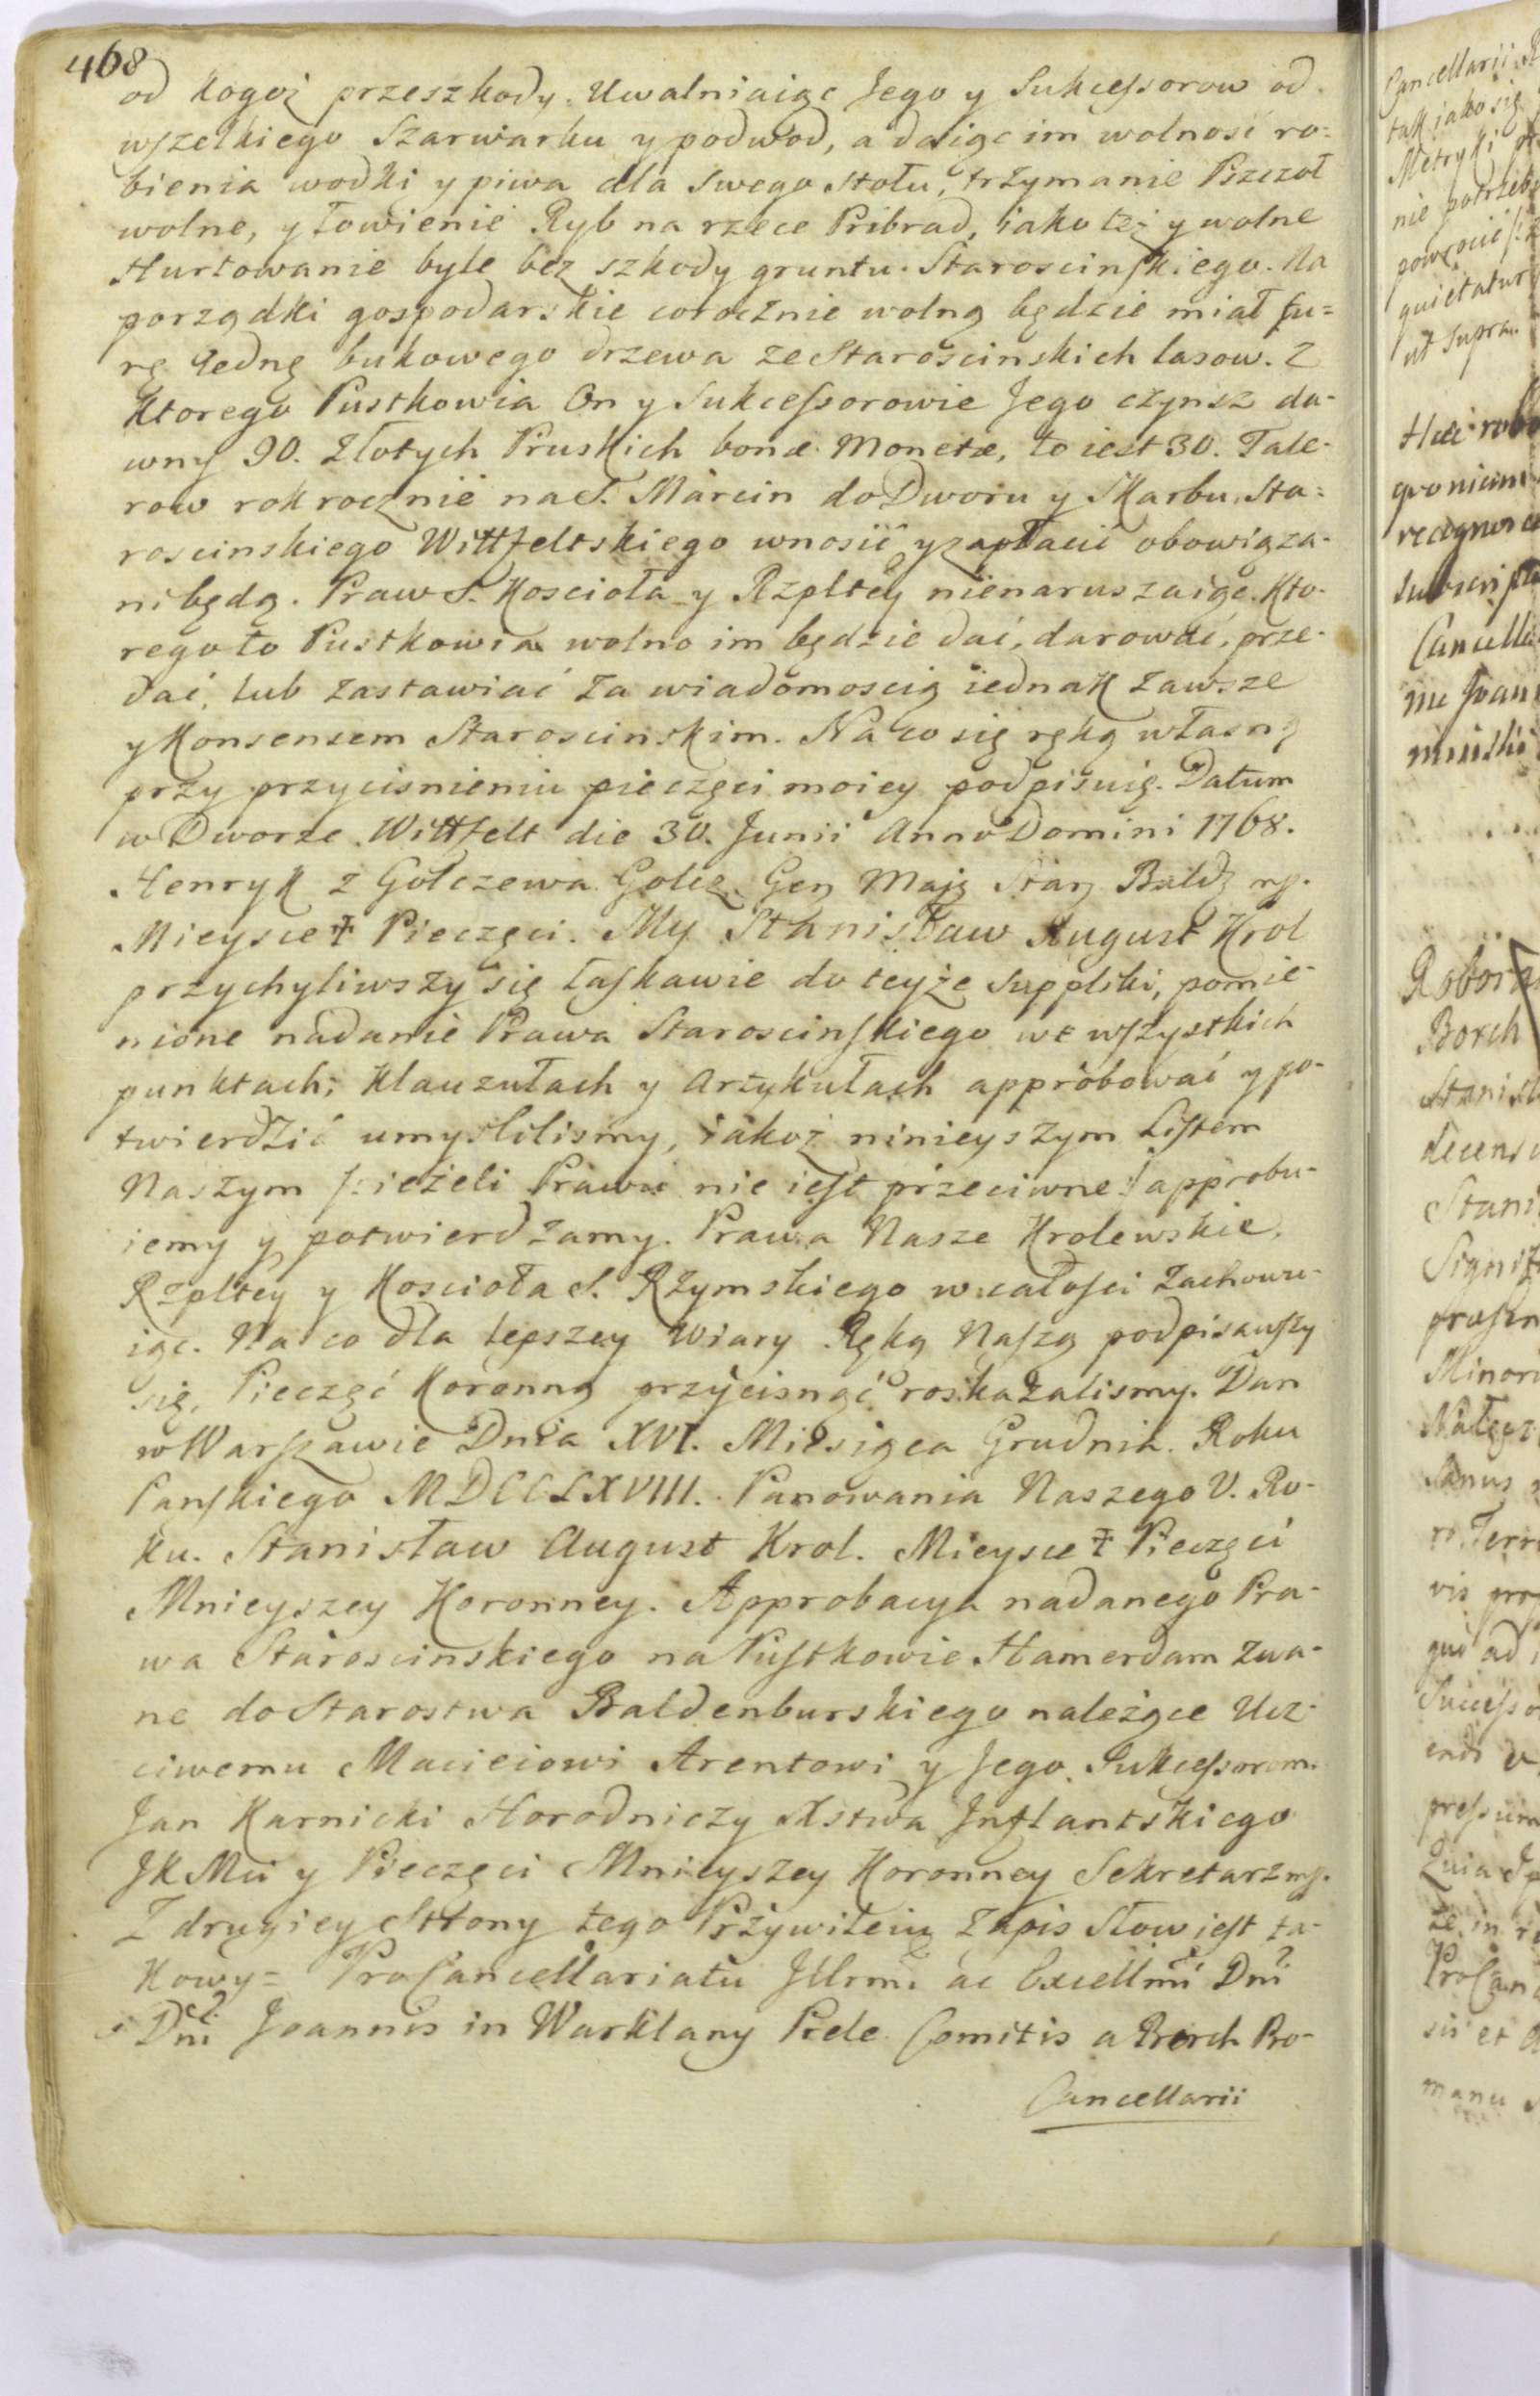 468
od kogoż przeszkody. Uwalniaiąc Jego y Sukcessorow od
wszelkiego Szarwarku y podwod, a daiąc im wolność ro=
bienia wodki y piwa dla swego stołu, trzymanie Pszczoł
wolne, y łowienie Ryb na rzece Pribrad, iako też y wolne
Hurtowanie byle bez szkody gruntu Staroscinskiego. Na
porządki gospodarskie corocznie wolną będzie miał fu=
rę iedną bukowego drzewa ze Staroscinskich lasow. Z
Ktorego Pustkowia On y Sukcessorowie Jego czynsz da-
wny 90. Złotych Pruskich bonæ Monetæ, to iest 30. Tale-
row rok rocznie na S. Marcin do Dworu y Skarbu Sta=
roscinskiego Wittfeltskiego wnosić y zapłacić obowiąza-
ni będą. Praw S. Koscioła y Rzpltey nienaruszaiąc. Kto-
rego to Pustkowia wolno im będzie dać, darować, prze-
dać, lub zastawiać za wiadomoscią iednak zawsze
y Konsensem Staroscinskim. Na co się ręką własną
przy przycisnieniu pieczęci moiey podpisuię. Datum
w Dworze Wittfelt die 30. Junii Anno Domini 1768.
Henryk z Golczewa Golcz Gen Maj Star Bald mp.
Mieysce ‡ Pieczęci. My Stanisław August Krol
przychyliwszy się łaskawie do teyże suppliki, pomie-
nione nadanie Prawa Staroscinskiego we wszystkich
punktach, Klauzułach y Artykułach approbować y po-
twierdzić umyslilismy, iakoż ninieyszym Listem
Naszym /: ieżeli Prawu nie iest przeciwne :/ approbu-
iemy y potwierdzamy. Prawa Nasze Krolewskie,
Rzpltey y Koscioła S. Rzymskiego w całosci zachowu-
iąc. Na co dla lepszey Wiary Ręką Naszą podpisawszy
się, Pieczęć Koronną przycisnąć roskazalismy. Dan
w Warszawie Dnia XVI. Miesiąca Grudnia Roku
Panskiego MDCCLXVIII. Panowania Naszego V. Ro-
ku. Stanisław August Krol. Mieysce ‡ Pieczęci
Mnieyszey Koronney. Approbacya nadanego Pra-
wa Staroscinskiego na Pustkowie Hamerdam zwa-
ne do Starostwa Baldenburskiego należące Ucz-
ciwemu Macieiowi Arentowi y Jego Sukcessorom.
Jan Karnicki Horodniczy Xstwa Inflantskiego
JK Mci y Pieczęci Mnieyszey Koronney Sekretarz mp.
Z drugiey Strony tego Przywileiu zapis Słow iest ta-
kowy= ProCancellariatu Jllrmi ac Excellmi Dni
Dni Joannis in Warklany Prele Comitis a Borch Pro-
Cancellarii
Cancellarii
tak jako się
Metryki
nie potrzeb
powrocić
quietatur
ut supra.
Cancella
Borch
Minori